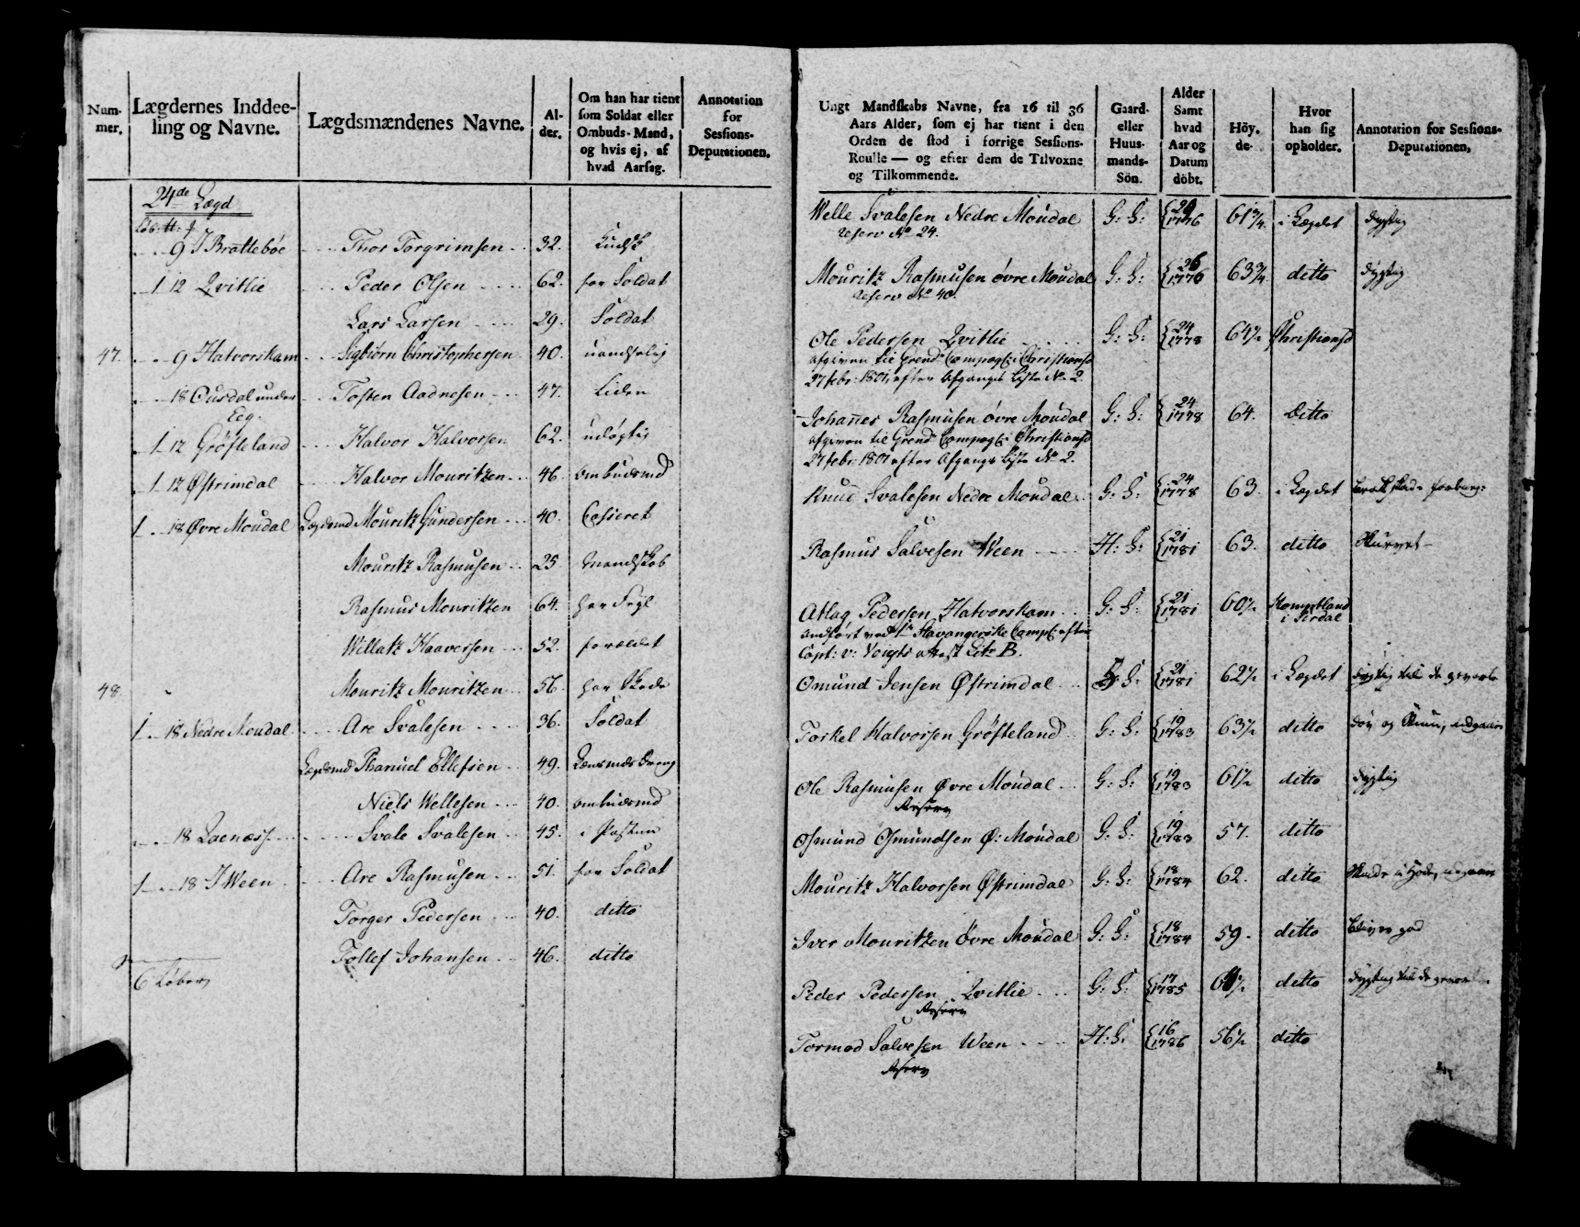 Num-
mer.
Lægdernes Inddee-
ling og Navne.
Lægdsmændenes Navne.
Al-
der.
Om han har tient
som Soldat eller
Ombuds-Mand,
og hvis ej, af
hvad Aarsag.
Annotation
for
Sessions-
Deputationen.
24de Lægd
9 I Brattebøe Thor Torgrimsen 32.
1 12 Qvitlie Peder Olsen 62. for Soldat
Lars Larsen 29. Soldat
47. 9 Hatvorskam Sigbiørn Christophersen 40. uandselig
18 Ousdal under Tosten Aadnesen 47. Liden
Eeg.
1 12 Grøfteland Halvor Halvorsen 62. udløgtig
1 12 Østrimdal Halvor Mouritzen 46. ombudsmd
1 18 Øvre Moudal Lægdsmd Mouritz Gundersen 40. Casseret
Mouritz Rasmusen 25 Mandskab
Rasmus Mouritzen 64. har Feyl
Willatz Haaversen 52. forældet
48. Mouritz Mouritzen 56. har Skade
1 18 Nedre Moudal Are Svalesen 36. Soldat
Lægdsmd Thanuel Ellefsen 49. Lænsmds Dreng
Niels Wellesen 40. ombudsmd
18 Svale Svalesen 45.
1 18 I Ween Are Rasmusen 51. for Soldat
Torger Pedersen 40. ditto
Tollef Johansen 46. ditto
6 Løber
Ungt Mandskabs Navne, fra 16 til 36
Aars Alder, som ej har tient i den
Orden de stod i forrige Sessions-
Roulle — og efter dem de Tilvoxne
og Tilkommende.
Gaard-
eller
Huus-
mands-
Sön.
Alder
Samt
hvad
Aar og
Datum
döbt.
Höy-
de.
Hvor
han sig
opholder.
Annotation for Sessions-
Deputationen,
Welle Svalesen Nedre Moudal G: S: 26 1776 61 3/4 i Lægdet dygtig
Reserv No 24.
Mouritz Rasmusen øvre Moudal G: S: 26 1776 63 3/4 ditto dygtig
Reserv No 40.
Ole Pedersen Qvitlie G: S: 24 1778 64 1/2 Christiansd
afgiven til Grend: Compagt: i Christiansd
27 febr: 1801, efter Afgangs Liste No 2.
Johannes Rasmusen øvre Moudal G: S: 24 1778 64. Ditto
afgiven til Grend: Compagt: i Christiansd
27 febr: 1801 efter Afgangs Liste No 2.
Knud Svalesen Nedre Moudal G: S: 24 1778 63. i Lægdet
Rasmus Salvesen Ween H: S: 21 1781 63. ditto Skurvet
Atlag Pedersen Hatvorskam G: S: 21 1781 60 1/2
i Sirdal
Capt: v: Voigts Attest Litr B.
Omund Jensen Østrimdal G: S: 21 1781 62 1/2 i Lægdet
Torkel Halvorsen Grøfteland G: S: 19 1783 63 1/2 ditto
Ole Rasmusen Øvre Moudal G: S: 19 1783 61 1/2 ditto dygtig
Reserv
Osmund Osmundsen Ø: Moudal G: S: 19 1783 57. ditto
Mouritz Halvorsen Østrimdal G: S: 18 1784 62. ditto
Iver Mouritzen Øvre Moudal G: S: 18 1784 59. ditto Bliver god
Peder Pedersen Qvitlie G: S: 17 1785 ditto
Reserv
Tormod Salvesen Ween H: S: 16 1786 56 1/2 ditto
Reserv